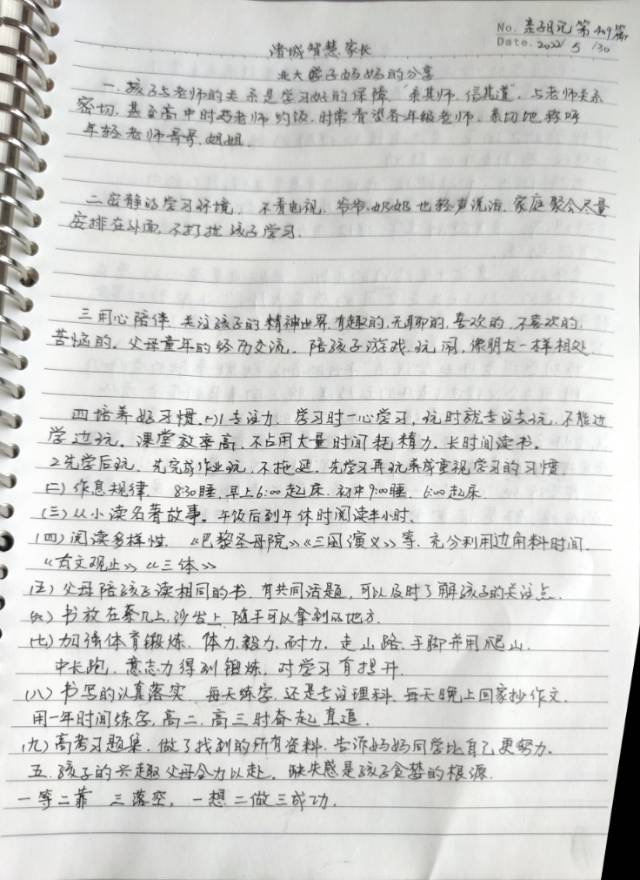 No. 亲子日记第409篇
Date. 2022/5/30
诸城智慧家长
北大学子妈妈的分享
一.孩子与老师的关系是学习好的保障."亲其师.信其道".与老师关系
密切.甚至高中时与老师约饭.时常看望各年级老师.亲切地称呼
年轻老师哥哥.姐姐.
二.安静的学习环境. 不看电视. 爷爷.奶奶也轻声说话.家庭聚会尽量
安排在外面.不打扰孩子学习.
三.用心陪伴.关注孩子的精神世界.有趣的.无聊的.喜欢的.不喜欢的.
苦恼的.父母童年的经历交流. 陪孩子游戏.玩闹.像朋友一样相处.
四.培养好习惯.(一)1专注力. 学习时一心学习.玩时就专注去玩.不能边
学边玩。课堂效率高.不占用大量时间耗精力.长时间读书。
2先学后玩. 先完成作业玩.不拖延.先学习再玩养成重视学习的习惯.
(二)作息规律. 8:30睡.早上6:00起床.初中9:00睡. 6:00起床.
(三)从小读名著故事。午饭后到午休时间阅读半小时.
(四)阅读多样性.《巴黎圣母院》《三国演义》等.充分利用边角料时间.
《古文观止》《三体》
(五)父母陪孩子读相同的书.有共同话题.可以及时了解孩子的关注点.
(六)书放在茶几上.沙发上.随手可以拿到的地方.
(七)加强体育锻炼. 体力.毅力.耐力. 走山路.手脚并用爬山.
中长跑. 意志力得到锻炼. 对学习有提升.
(八)书写的认真落实. 每天练字.还是专注理科.每天晚上回家抄作文.
用一年时间练字.高二.高三时奋起直追.
(九)高考习题集.做了找到的所有资料.告诉妈妈同学比自己更努力.
五.孩子的兴趣父母全力以赴. 缺失感是孩子贪婪的根源.
一等二靠 三落空. 一想二做三成功.